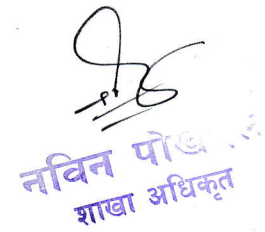 नविन
शाखा अधिकृत